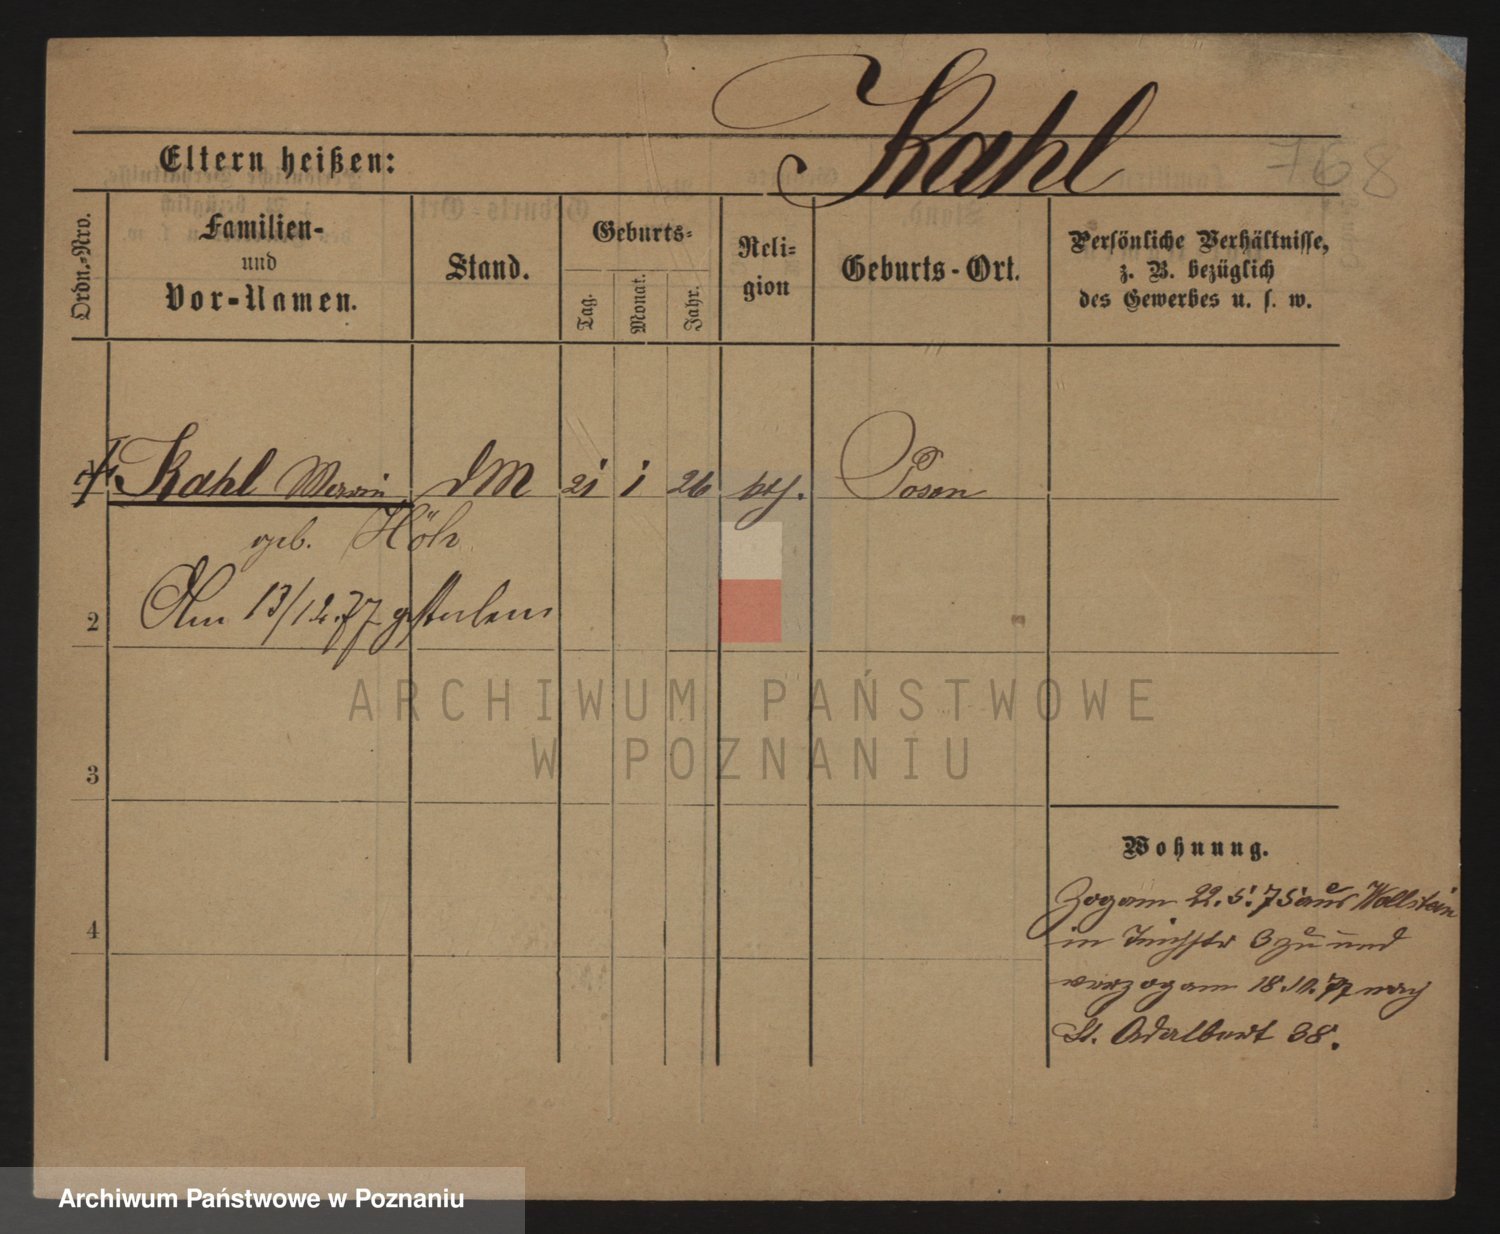 Kahl
768
Eltern heißen:
Ordn.-Nro.
Familien-
und
Vor-Namen.
Stand.
Geburts-
Tag.
Monat.
Jahr.
Reli-
gion
Geburts-Ort.
Persönliche Verhältnisse,
z. B. bezüglich
des Gewerbes u. s. w.
Kahl 21 1 26 Posen
geb. Höh
2
Am 13/12.77 gestorben
3
ARCHIWUM PAŃSTWOWE
W POZNANIU
Wohnung.
Zog am 22.5.75 aus Wollstein
4
in 3 zu und
verzog am 18.10.77 nach
St. Adalbert 38.
Archiwum Państwowe w Poznaniu